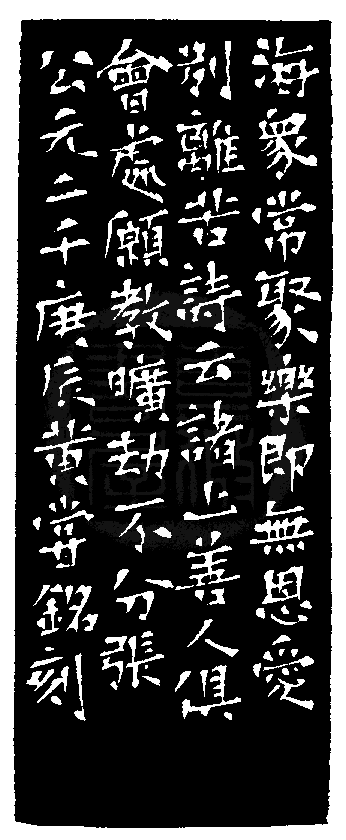 海衆常聚樂即無恩愛
別離苦詩云諸上善人俱
會處願教曠劫不分張
公元二千庚辰黃嘗銘刻